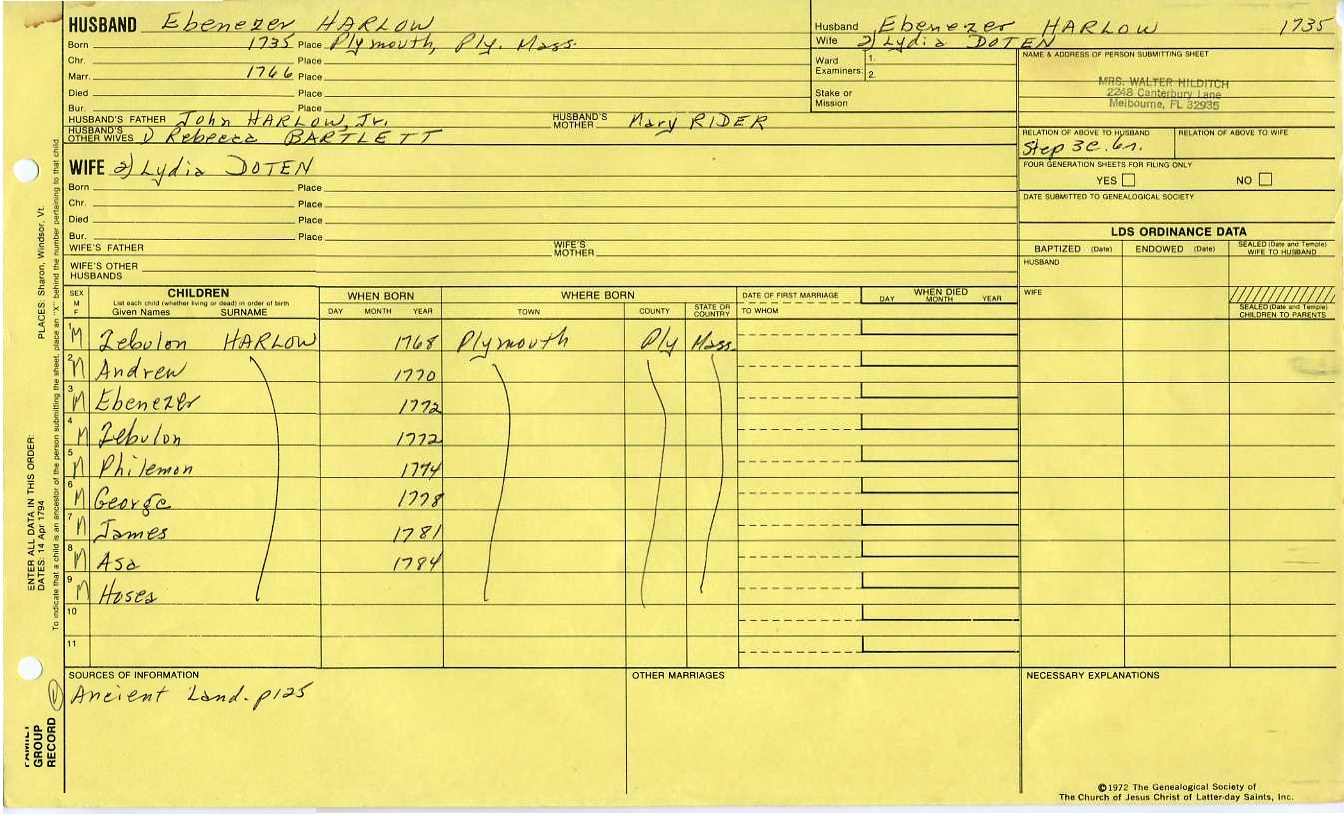 HUSBAND Ebenezer HARLOW
Born 1735 Place Plymouth, Ply. Mass.
Chr. Place
Marr. 1766 Place
Died Place
Bur. Place
HUSBAND'S FATHER John HARLOW, Jr. HUSBAND'S MOTHER Mary RIDER
HUSBAND'S OTHER WIVES 1) Rebecca BARTLETT
Husband Ebenezer HARLOW 1735
Wife 2) Lydia DOTEN
Ward Examiners: 1.
2.
Stake or Mission
NAME & ADDRESS OF PERSON SUBMITTING SHEET
MRS. WALTER HILDITCH
2248 Canterbury Lane
Melbourne, FL 32935
RELATION OF ABOVE TO HUSBAND RELATION OF ABOVE TO WIFE
Step 3C. 6r.
FOUR GENERATION SHEETS FOR FILING ONLY
YES NO
DATE SUBMITTED TO GENEALOGICAL SOCIETY
WIFE 2) Lydia DOTEN
Born Place
Chr. Place
Died Place
Bur. Place
WIFE'S FATHER WIFE'S MOTHER
WIFE'S OTHER HUSBANDS
LDS ORDINANCE DATA
BAPTIZED (Date) ENDOWED (Date) SEALED (Date and Temple) WIFE TO HUSBAND
HUSBAND
WIFE
SEALED (Date and Temple) CHILDREN TO PARENTS
SEX M F CHILDREN WHEN BORN WHERE BORN DATE OF FIRST MARRIAGE WHEN DIED
List each child (whether living or dead) in order of birth
Given Names SURNAME DAY MONTH YEAR TOWN COUNTY STATE OR COUNTRY TO WHOM DAY MONTH YEAR
1 M Zebulon HARLOW 1768 Plymouth Ply Mass.
2 M Andrew 1770
3 M Ebenezer 1772
4 M Zebulon 1772
5 M Philemon 1774
6 M George 1778
7 M James 1781
8 M Asa 1784
9 M Hosea
10
11
SOURCES OF INFORMATION OTHER MARRIAGES NECESSARY EXPLANATIONS
Ancient Land. p125
©1972 The Genealogical Society of
The Church of Jesus Christ of Latter-day Saints, Inc.
PLACES: Sharon, Windsor, Vt.
ENTER ALL DATA IN THIS ORDER:
DATES: 14 Apr 1794
To indicate that a child is an ancestor of the person submitting the sheet, place an "X" behind the number pertaining to that child.
FAMILY
GROUP
RECORD